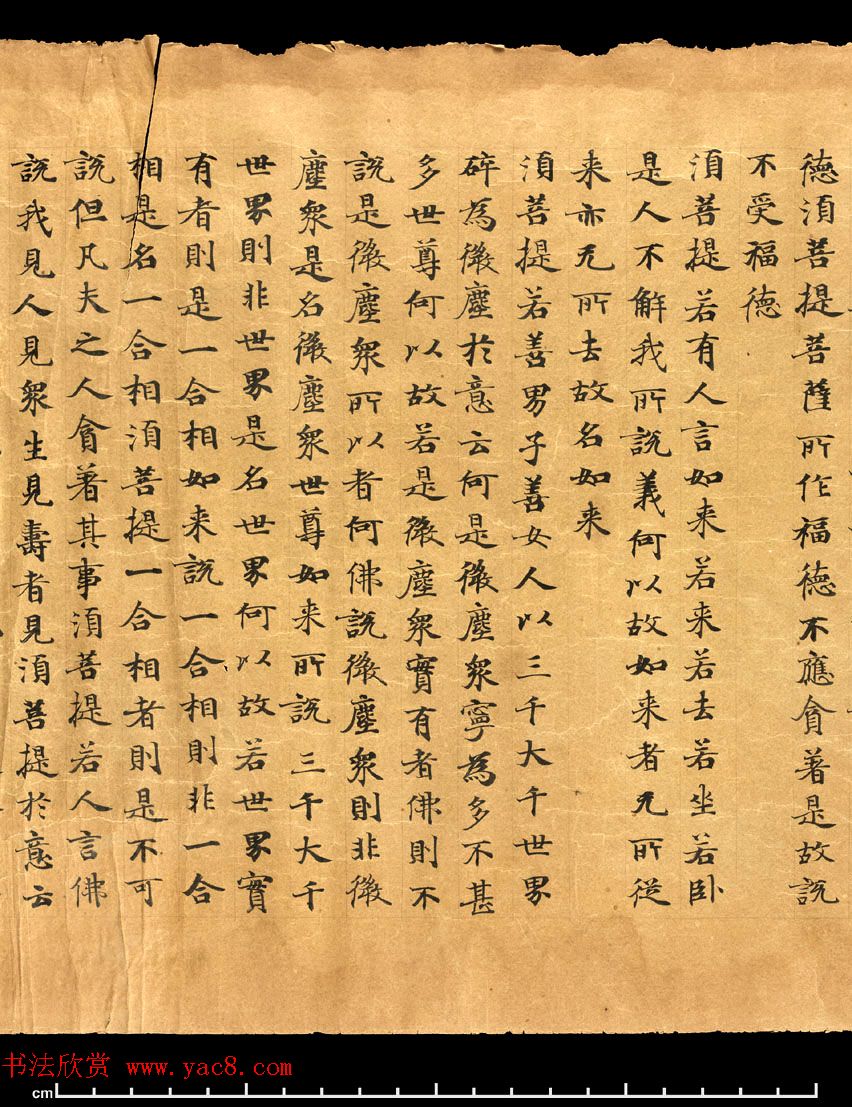 德須菩提菩薩所作福德不應貪著是故說
不受福德
須菩提若有人言如来若来若去若坐若卧
是人不解我所說義何以故如来者无所従
来亦无所去故名如来
須菩提若善男子善女人以三千大千世界
碎為微塵於意云何是微塵衆寧為多不甚
多世尊何以故若是微塵衆實有者佛則不
說是微塵衆所以者何佛說微塵衆則非微
塵衆是名微塵衆世尊如来所說三千大千
世界則非世界是名世界何以故若世界實
有者則是一合相如来說一合相則非一合
相是名一合相須菩提一合相者則是不可
說但凡夫之人貪著其事須菩提若人言佛
說我見人見衆生見壽者見須菩提於意云
书法欣赏 www.yac8.com
cm